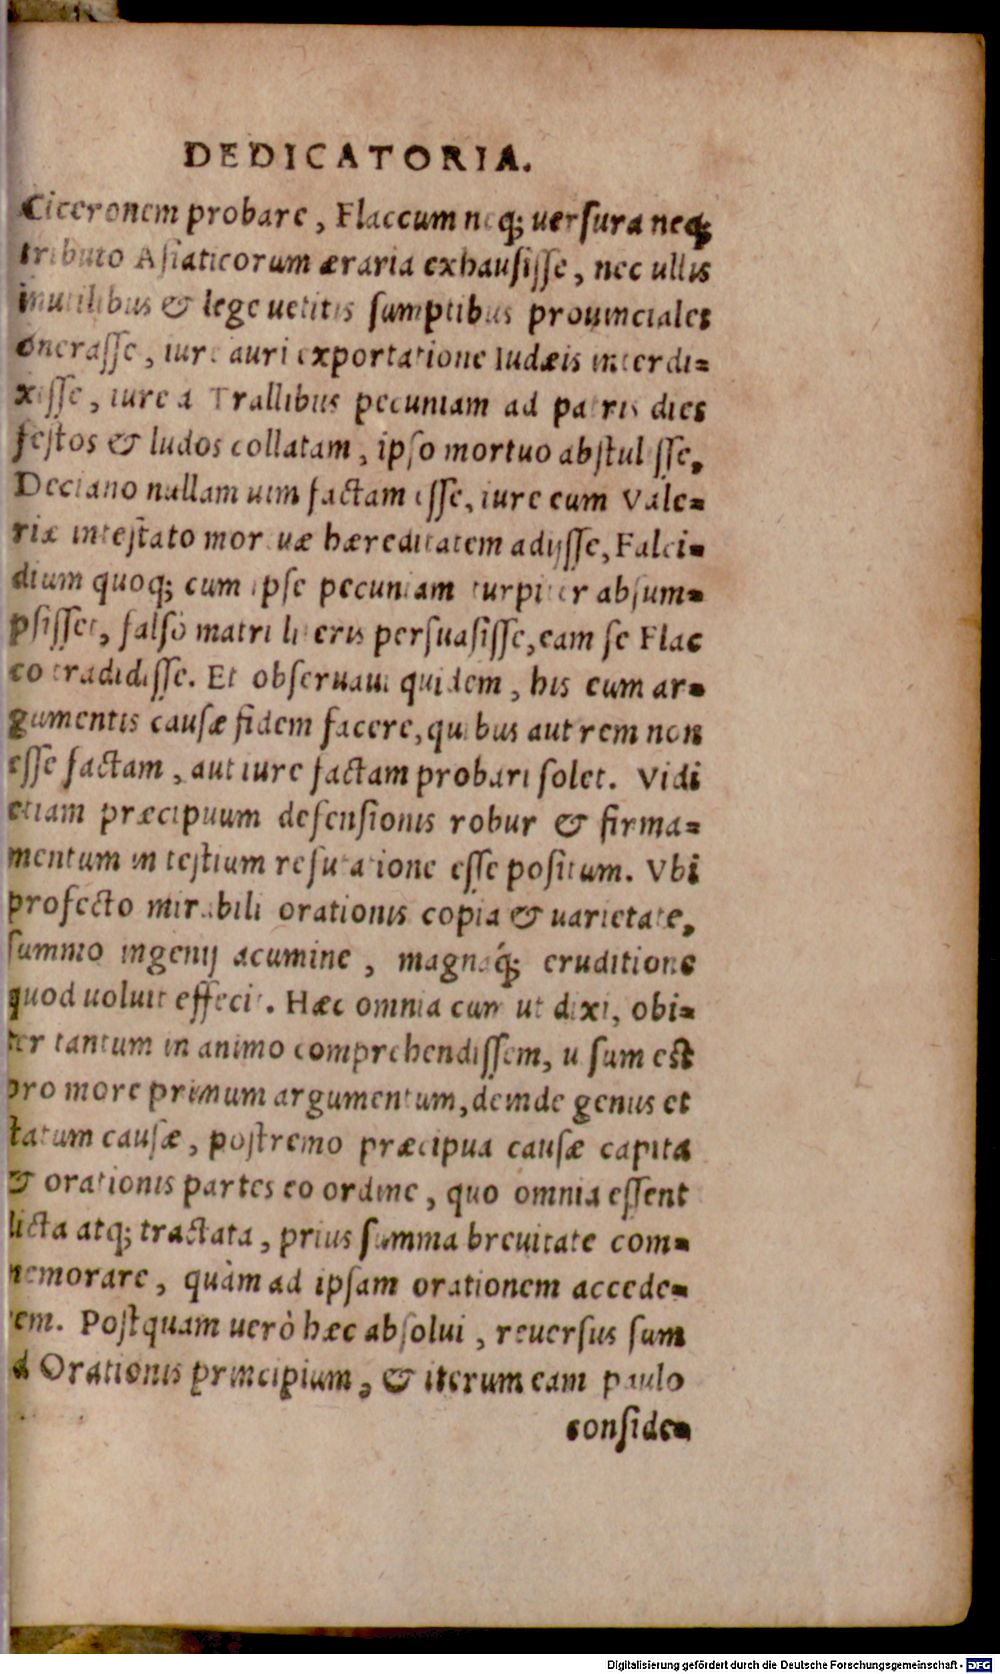 DEDICATORIA.
Ciceronem probare, Flaccum neq; uersura neq;
tributo Asiaticorum æraria exhausisse, nec ullis
inutilibus & lege uetitis sumptibus prouinciales
onerasse, iure auri exportatione Iudæis interdi=
xisse, iure a Trallibus pecuniam ad patris dies
festos & ludos collatam, ipso mortuo abstulisse,
Deciano nullam uim factam esse, iure eum Vale=
riæ intestato mortuæ hæreditatem adijsse, Falci=
dium quoq; cum ipse pecuniam turpiter absum=
psisset, falsò matri literis persuasisse, eam se Flac
co tradidisse. Et obseruaui quidem, his eum ar=
gumentis causæ fidem facere, quibus aut rem non
esse factam, aut iure factam probari solet. Vidi
etiam præcipuum defensionis robur & firma=
mentum in testium refutatione esse positum. Vbi
profecto mirabili orationis copia & uarietate,
summo ingenij acumine, magnaq́; eruditione
quod uoluit effecit. Hæc omnia cum ut dixi, obi=
ter tantum in animo comprehendissem, uisum est
pro more primum argumentum, deinde genus et
statum causæ, postremo præcipua causæ capita
& orationis partes eo ordine, quo omnia essent
dicta atq; tractata, prius summa breuitate com=
memorare, quàm ad ipsam orationem accede=
rem. Postquam uerò hæc absolui, reuersus sum
ad Orationis principium, & iterum eam paulo
conside=
Digitalisierung gefördert durch die Deutsche Forschungsgemeinschaft - DFG